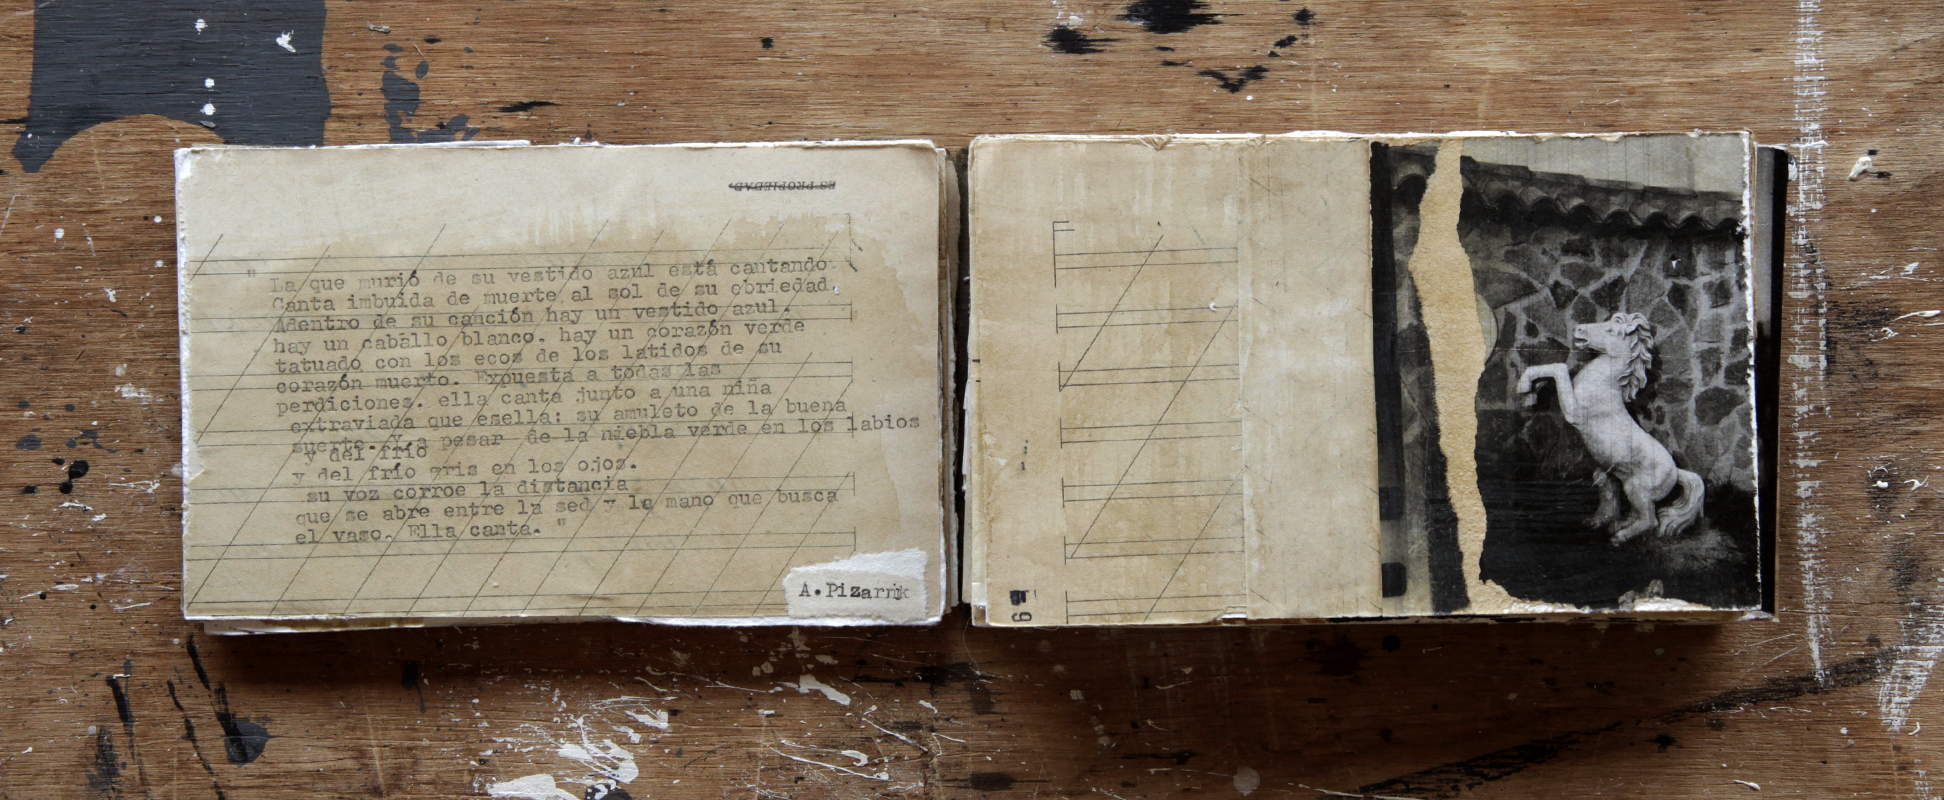 ES PROPIEDAD.
" La que murió de su vestido azul está cantando.
Canta imbuída de muerte al sol de su obriedad.
Adentro de su canción hay un vestido azul.
hay un caballo blanco. hay un corazón verde
tatuado con los ecos de los latidos de su
corazón muerto. Expuesta a todas las
perdiciones. ella canta junto a una niña
extraviada que esella: su amuleto de la buena
suerte. Y a pesar de la niebla verde en los labios
y del frío
y del frío gris en los ojos.
su voz corroe la distancia
que se abre entre la sed y la mano que busca
el vaso. Ella canta. "
A.Pizarnik